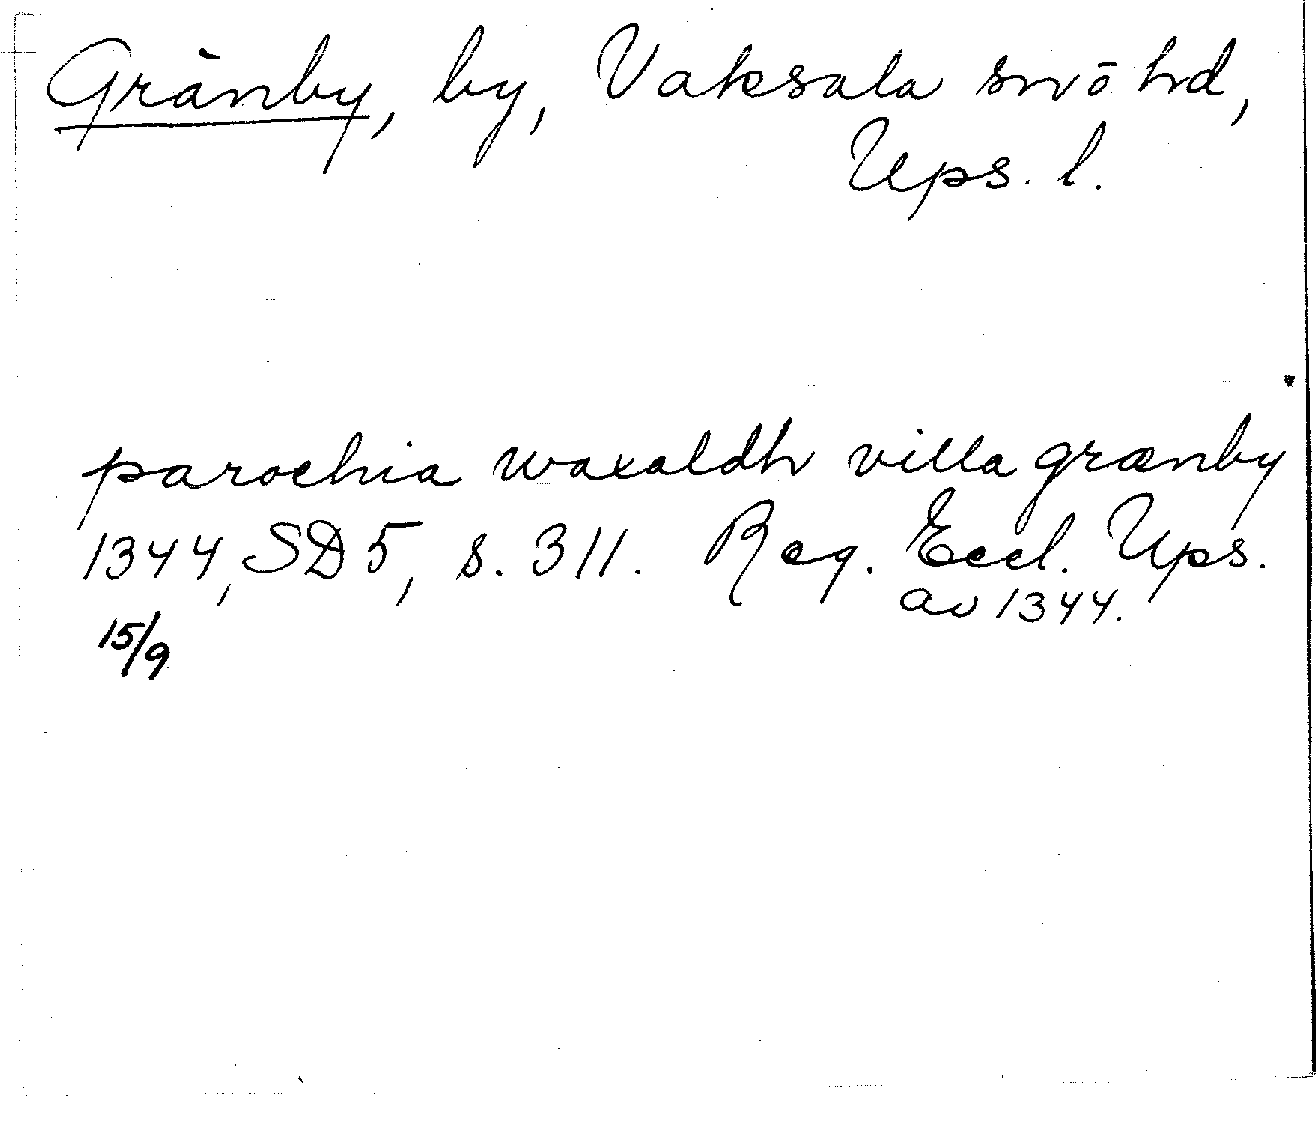 Gränby, by, Vaksala sn o hd,
Ups. l.
parochia waxaldh villa grænby
1344, SD 5, s. 311. Reg. Eccl. Ups.
av 1344.
15/9